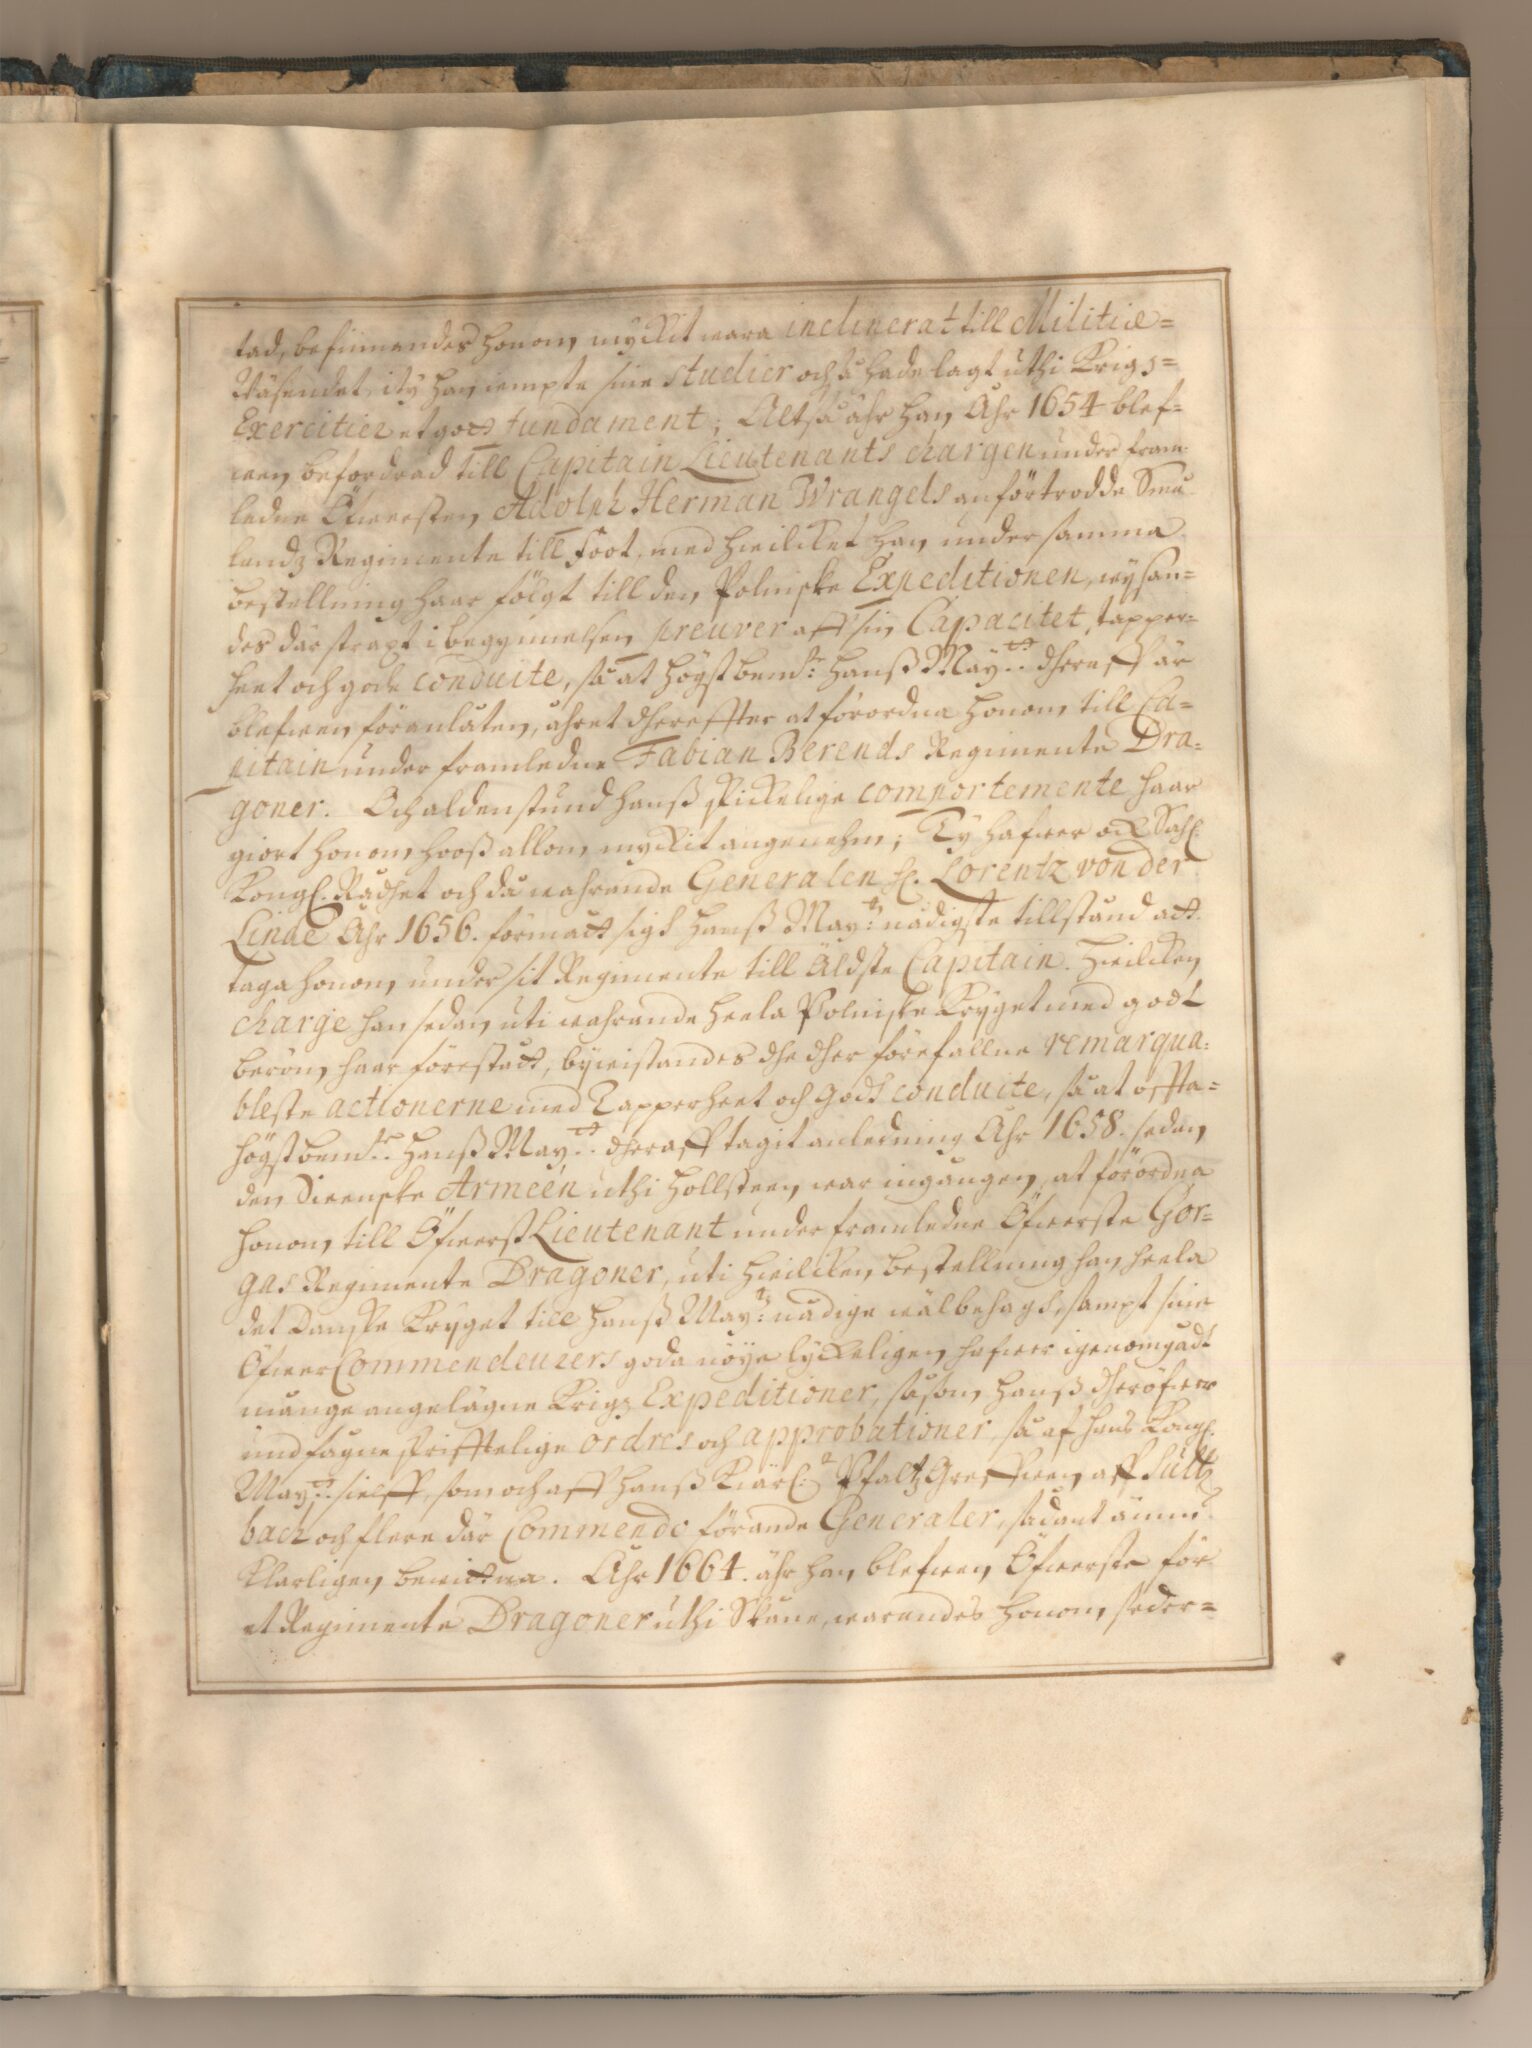 tad, befinnandes honom myckit wara inclinerat till Militiæ=
Wäsendet, ity han iempte sine studier och så hade lagt uthi Krigz=
Exercitier et gott fundament; Altså ähr han Åhr 1654 blef=
wen befordrad till Capitain Lieutenants chargen under fram-
ledne Öfwersten Adolph Herman Wrangels anförtrodde Små-
landz Regimente till Foot, med hwilcket han under samma
bestellning haar fölgt till den Polniske Expeditionen, wysan=
des där strapt i begynnelsen preuver aff sin Capacitet, tapper=
heet och gode conduite, så at högstbem:te Hanß May:tt dheraff är
blefwen föranlåten, åhret dhereffter at förordna honom till Ca=
pitain under framledne Fabian Berends Regimente Dra=
goner. Och aldenstund hanß skickelige comportemente haar
giort honom hooß allom myckit angenehm; Ty hafwer ock Sahl:
Kongl. Rådhet och då wahrande Generalen H. Lorentz von der
Linde Åhr 1656. förmått sigh Hanß May:tz nådigste tillstånd att
taga honom under sit Regimente till Äldste Capitain. Hwilcken
charge han sedan uti wahrande heela Polniske Kryget med godt
beröm haar förestått, bywistandes dhe dher förefallne remarqua=
bleste actionerne med Tapperheet och godh conduite, så at offta=
högstbem:te Hanß May:tt dheraff tagit anledning Åhr 1658. sedan
den Swenske Arméen uthi Hollsteen war ingången, at förordna
honom till Öfwerst Lieutenant under framledne Öfwerste Gor=
gas Regimente Dragoner, uti hwilcken bestellning han heela
det Danske Kryget till Hanß May:tz nådige wälbehagh, sampt sine
Öfwer Commendeurers goda nöye lyckeligen hafwer igenomgådt
månge angelägne Krigz Expeditioner, såsom hanß dheröfwer
undfagne skrifftelige ordres och approbationer, så af hans Kongl.
May:tt sielff, som och aff Hanß Kiärl: Pfaltz Grefwen aff Sultz
bach och flere där Commendo förande Generaler, sådant ännu
klarligen bewittna. Åhr 1664. ähr han blefwen Öfwerste för
et Regimente Dragoner uthi Skåne, warandes honom seder=